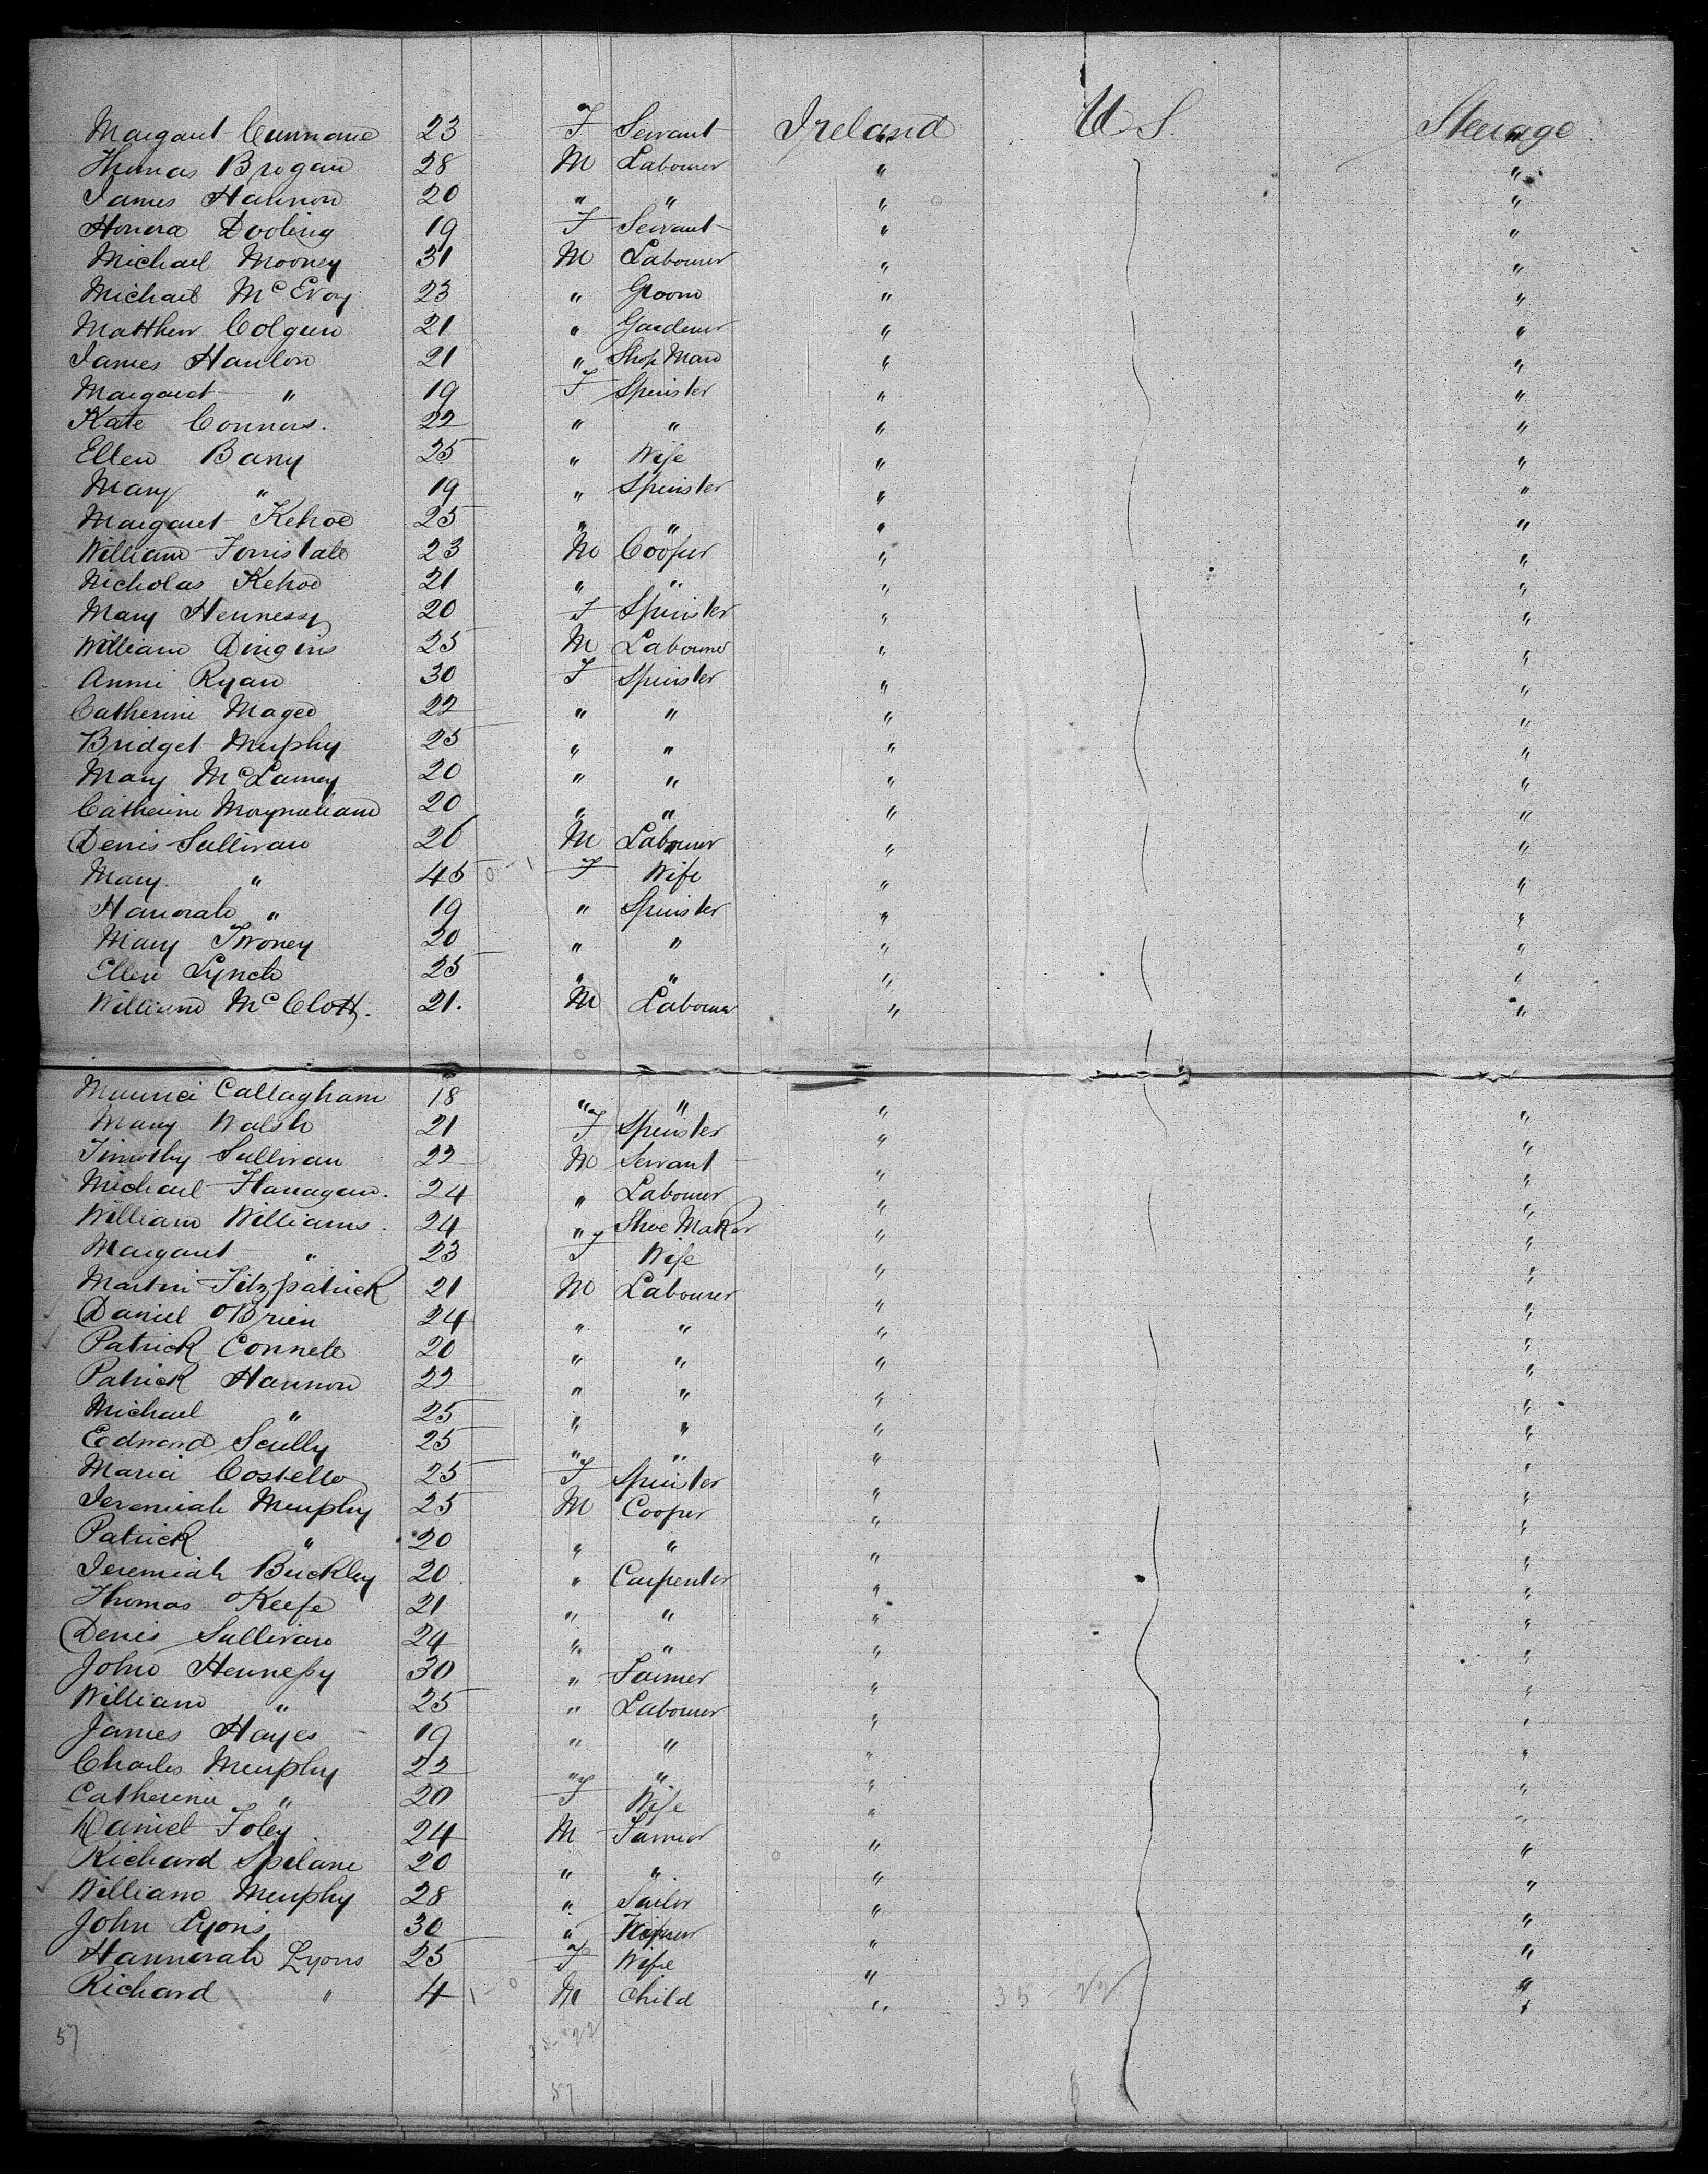 Margaret Cunnane 23 F Servant Ireland U S. Steerage
Thomas Brogan 28 M Labourer " "
James Hannon 20 " " " "
Honora Dooling 19 F Servant " "
Michael Mooney 31 M Labourer " "
Michael McEvoy 23 " Groom " "
Matthew Colgan 21 " Gardener " "
James Hanlon 21 " Shop Man " "
Margaret " 19 F Spinster " "
Kate Connors. 22 " " " "
Ellen Barry 25 " Wife " "
Mary " 19 " Spinster " "
Margaret Kehoe 25 " " " "
William Forristale 23 M Cooper " "
Nicholas Kehoe 21 " " " "
Mary Hennessy 20 F Spinster " "
William Dingins 25 M Labourer " "
Annie Ryan 30 F Spinster " "
Catherine Magee 22 " " " "
Bridget Murphy 25 " " " "
Mary McLarney 20 " " " "
Catherine Moynahane 20 " " " "
Denis Sullivan 26 M Labourer " "
Mary " 45 0-1 F Wife " "
Hanorah " 19 " Spinster " "
Mary Twoney 20 " " " "
Ellen Lynch 25 " " " "
William McClott. 21. M Labourer " "
Maurice Callaghan 18 " " " "
Mary Walsh 21 F Spinster " "
Timothy Sullivan 22 M Servant " "
Michael Flanagan. 24 " Labourer " "
William Williams. 24 " Shoe Maker " "
Margaret " 23 F Wife " "
Martin Fitzpatrick 21 M Labourer " "
Daniel OBrien 24 " " " "
Patrick Connell 20 " " " "
Patrick Hannon 22 " " " "
Michael " 25 " " " "
Edward Scully 25 " " " "
Maria Costello 25 F Spinster " "
Jeremiah Murphy 25 M Cooper " "
Patrick " 20 " " " "
Jeremiah Buckley 20 " Carpenter " "
Thomas OKeefe 21 " " " "
Denis Sullivan 24 " " " "
John Hennessy 30 " Farmer " "
William " 25 " Labourer " "
James Hayes 19 " " " "
Charles Murphy 22 " " " "
Catherine " 20 F Wife " "
Daniel Foley 24 M Farmer " "
Richard Spilane 20 " " " "
William Murphy 28 " Sailor " "
John Lyons 30 " " "
Hannorah Lyons 25 F Wife " "
Richard " 4 1-0 M Child " 35-22 "
57 35-22
57